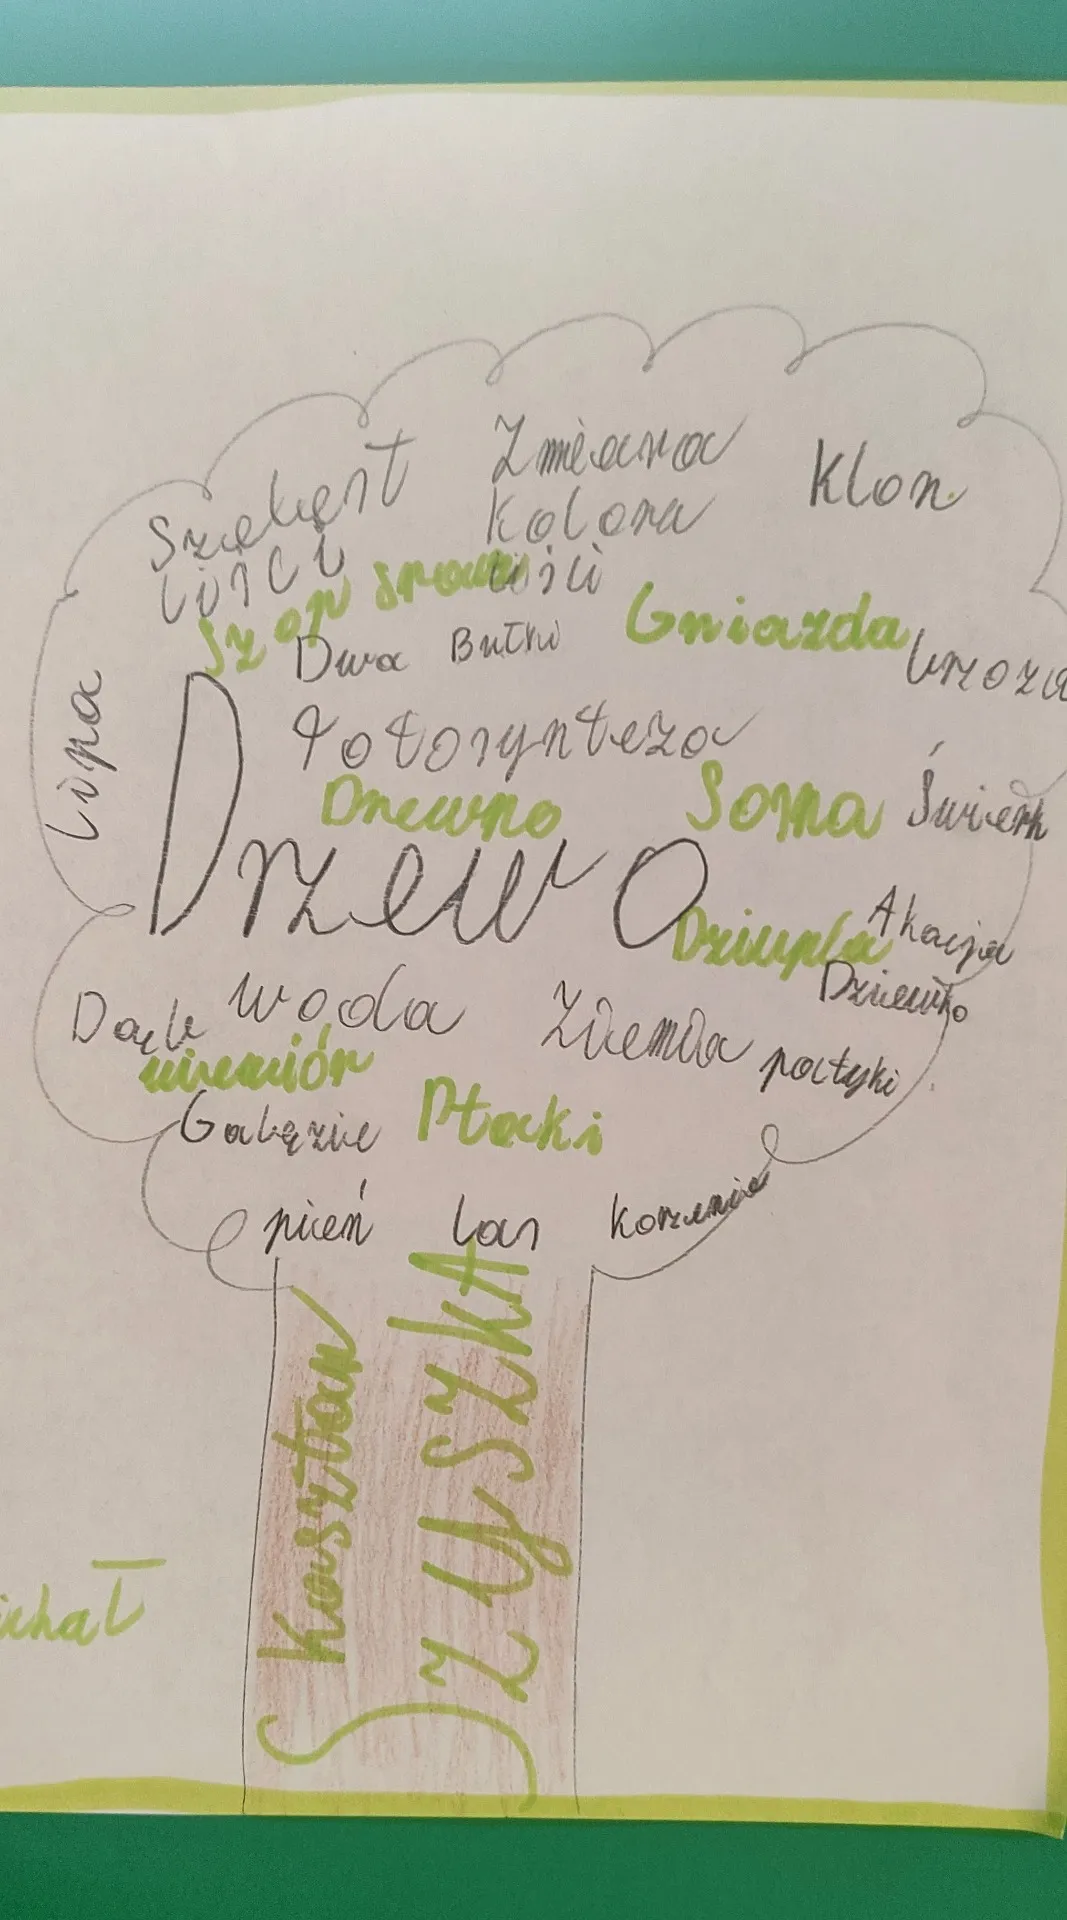 Szelest
liści
Zmiana
Kolora
liści
Klon
Dwa Butki
Gniazda
brzoza
Lipa
Fotosynteza
Drewno
Sosna
Świerk
Drzewo
Dziupla
Akacja
Drzewko
Dąb
woda
Ziemia
patyki
wiewiór
Gałęzie
Ptaki
pień
las
korzenie
Kasztan
SZYSZKA
ichał